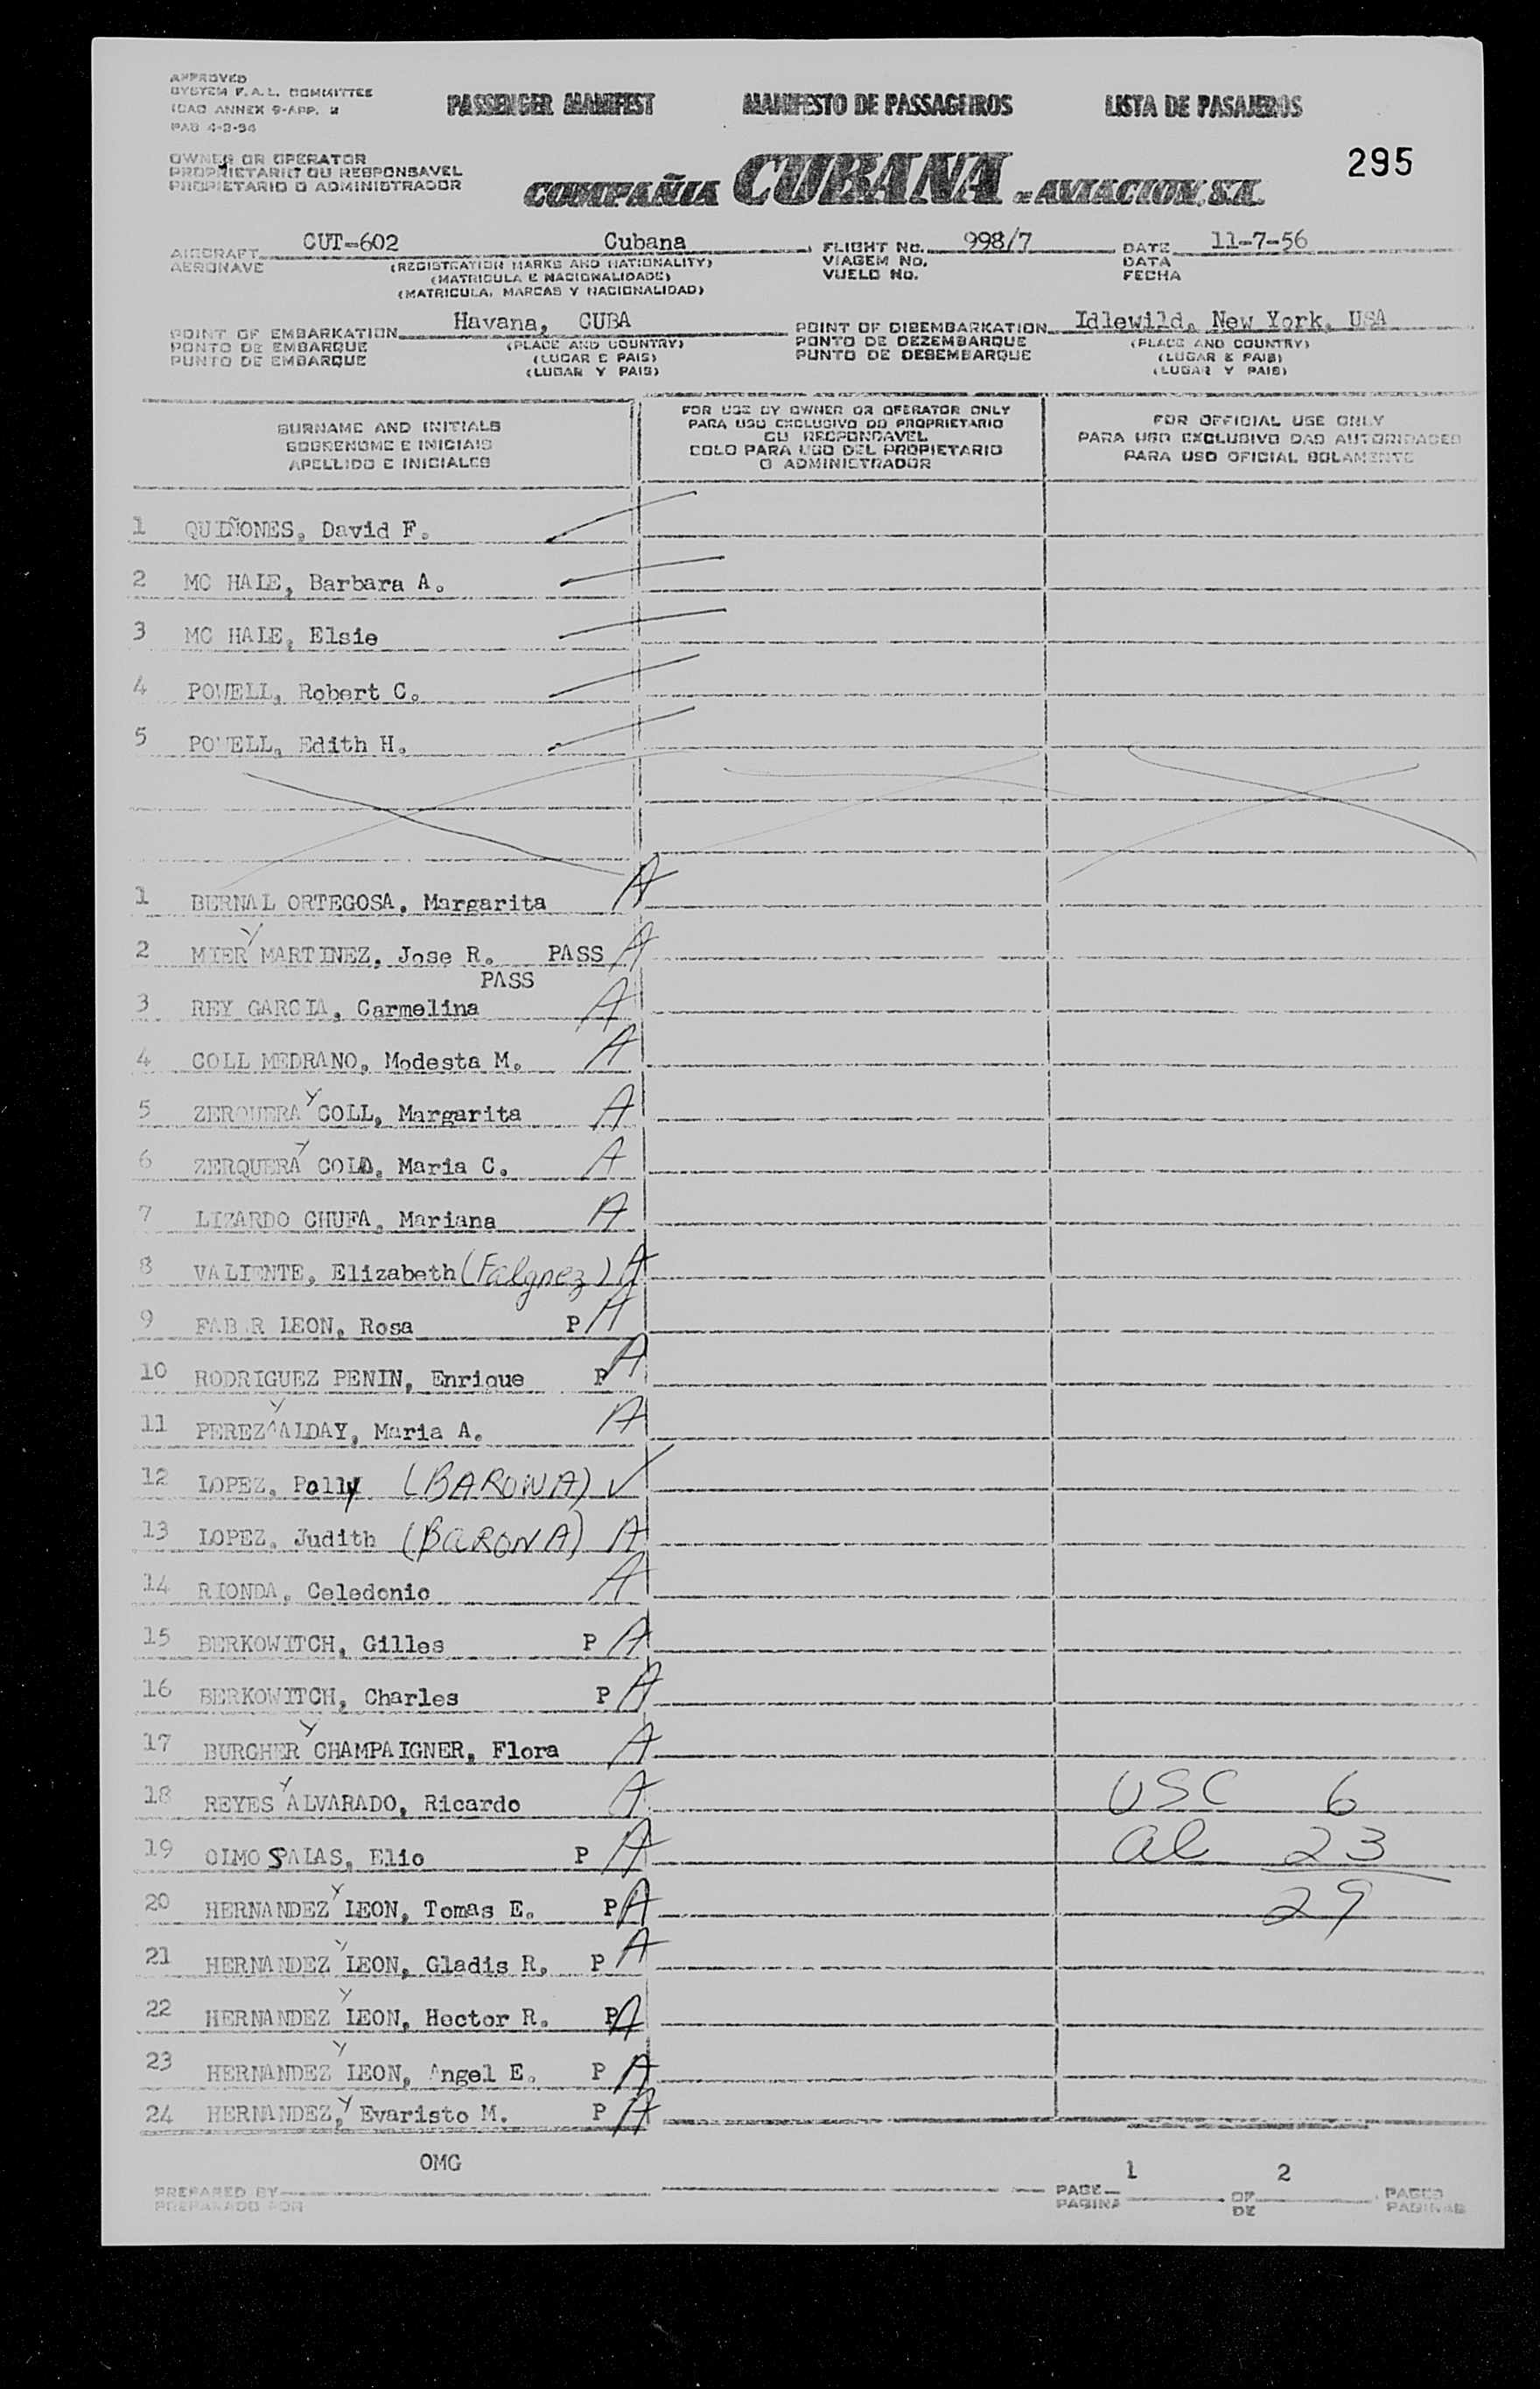 APPROVED
SYSTEM F.A.L. COMMITTEE
ICAO ANNEX 9-APP. 2
PAB 4-2-54
PASSENGER MANIFEST MANIFESTO DE PASSAGEIROS LISTA DE PASAJEROS
OWNER OR OPERATOR
PROPRIETARIO OU RESPONSAVEL
PROPIETARIO O ADMINISTRADOR
COMPAÑIA CUBANA DE AVIACION, S.A.
295
AIRCRAFT CUT-602 Cubana FLIGHT No. 998/7 DATE 11-7-56
AERONAVE (REGISTRATION MARKS AND NATIONALITY) VIAGEM No. DATA
(MATRICULA E NACIONALIDADE) VUELO No. FECHA
(MATRICULA, MARCAS Y NACIONALIDAD)
POINT OF EMBARKATION Havana, CUBA POINT OF DISEMBARKATION Idlewild, New York, USA
PONTO DE EMBARQUE (PLACE AND COUNTRY) PONTO DE DEZEMBARQUE (PLACE AND COUNTRY)
PUNTO DE EMBARQUE (LUGAR E PAIS) PUNTO DE DESEMBARQUE (LUGAR E PAIS)
(LUGAR Y PAIS) (LUGAR Y PAIS)
SURNAME AND INITIALS
SOBRENOME E INICIAIS
APELLIDO E INICIALES
FOR USE BY OWNER OR OPERATOR ONLY
PARA USO EXCLUSIVO DO PROPRIETARIO
OU RESPONSAVEL
SOLO PARA USO DEL PROPIETARIO
O ADMINISTRADOR
FOR OFFICIAL USE ONLY
PARA USO EXCLUSIVO DAS AUTORIDADES
PARA USO OFICIAL SOLAMENTE
1 QUIÑONES, David F.
2 MC HALE, Barbara A.
3 MC HALE, Elsie
4 POWELL, Robert C.
5 POWELL, Edith H.
1 BERNAL ORTEGOSA, Margarita A
2 MIER Y MARTINEZ, Jose R. PASS A
PASS
3 REY GARCIA, Carmelina A
4 COLL MEDRANO, Modesta M. A
5 ZERQUERA Y COLL, Margarita A
6 ZERQUERA Y COLL, Maria C. A
7 LIZARDO CHUFA, Mariana A
8 VALIENTE, Elizabeth (Falgnez) A
9 FABER LEON, Rosa P A
10 RODRIGUEZ PENIN, Enrique P A
11 PEREZ Y ALDAY, Maria A. A
12 LOPEZ, Polly (BARONA) ✓
13 LOPEZ, Judith (BARONA) A
14 RIONDA, Celedonio A
15 BERKOWITCH, Gilles P A
16 BERKOWITCH, Charles P A
17 BURGHER Y CHAMPAIGNER, Flora A
18 REYES Y ALVARADO, Ricardo A USC 6
19 OLMO SALAS, Elio P A al 23
20 HERNANDEZ Y LEON, Tomas E. P A 29
21 HERNANDEZ Y LEON, Gladis R. P A
22 HERNANDEZ Y LEON, Hector R. P A
23 HERNANDEZ Y LEON, Angel E. P A
24 HERNANDEZ, Y Evaristo M. P A
PREPARED BY OMG PAGE 1 OF 2 PAGES
PREPARADO POR PAGINA DE PAGINAS